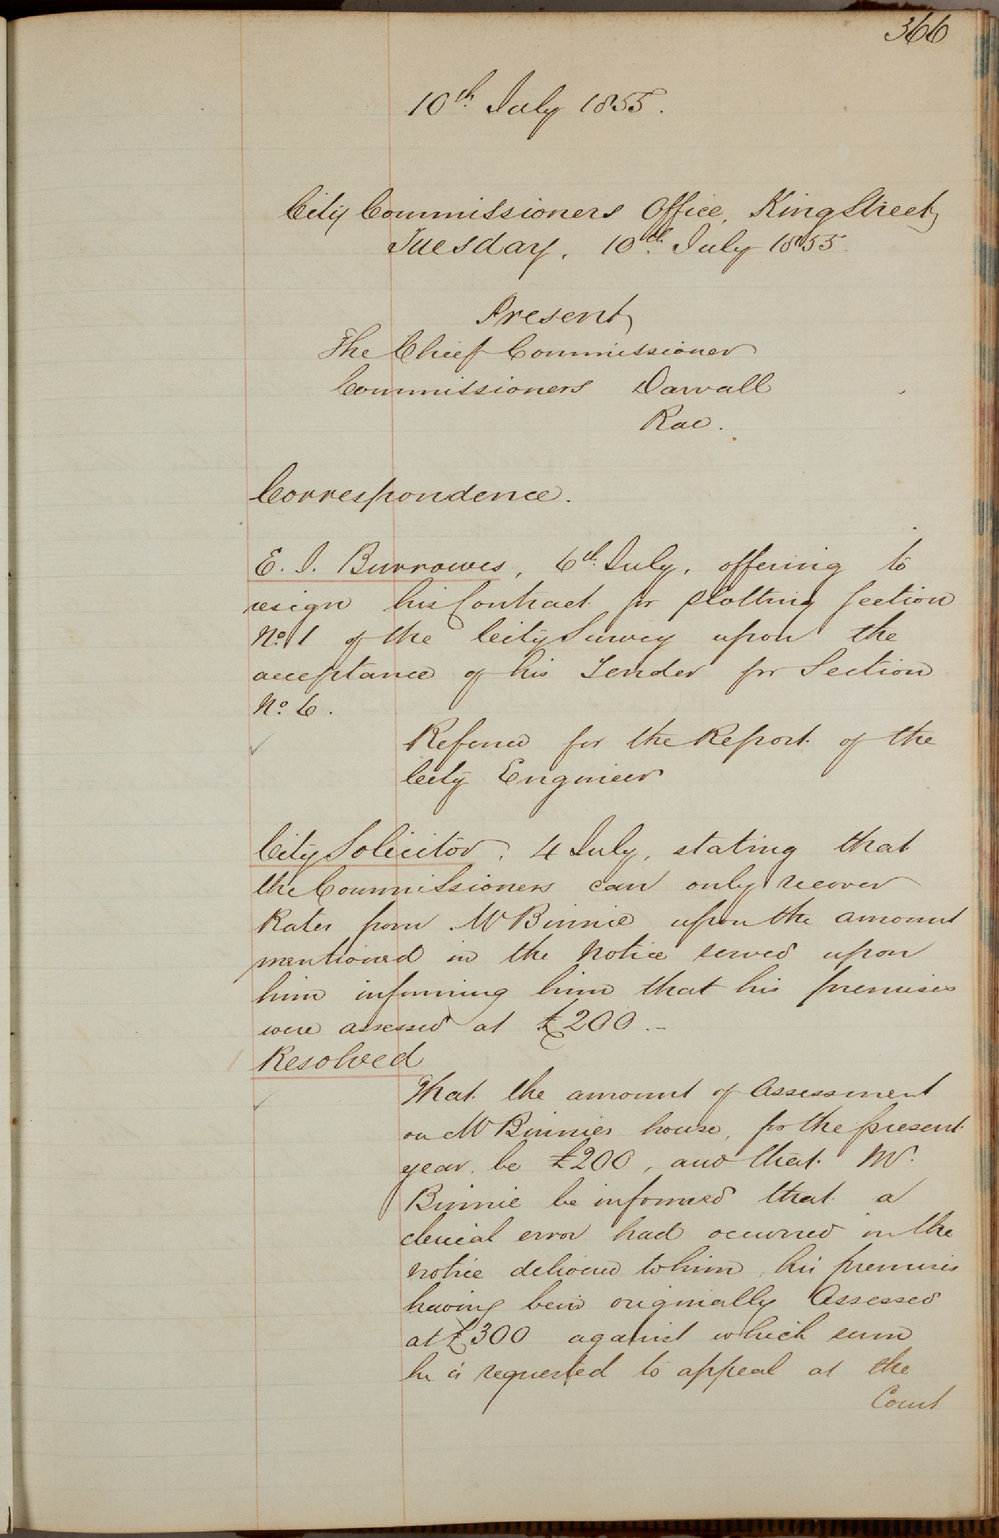 366
10th July 1855.
City Commissioners Office, King Street,
Tuesday, 10th July 1855.
Present,
The Chief Commissioner
Commissioners Darvall
Rae.
Correspondence.
E. I. Burrowes, 6th July, offering to
resign his Contract for plotting Section
No. 1 of the City Survey upon the
acceptance of his Tender for Section
No. 6.
Referred for the Report of the
City Engineer
City Solicitor, 4 July, stating that
the Commissioners can only recover
Rates from Mr Binnie upon the amount
mentioned in the Notice served upon
him informing him that his premises
were assessed at £200.-
Resolved
That the amount of Assessment
on Mr Binnies house, for the present
year, be £200, and that Mr.
Binnie be informed that a
clerical error had occurred in the
notice delivered to him, his premises
having been originally Assessed
at £300 against which sum
he is requested to appeal at the
Court